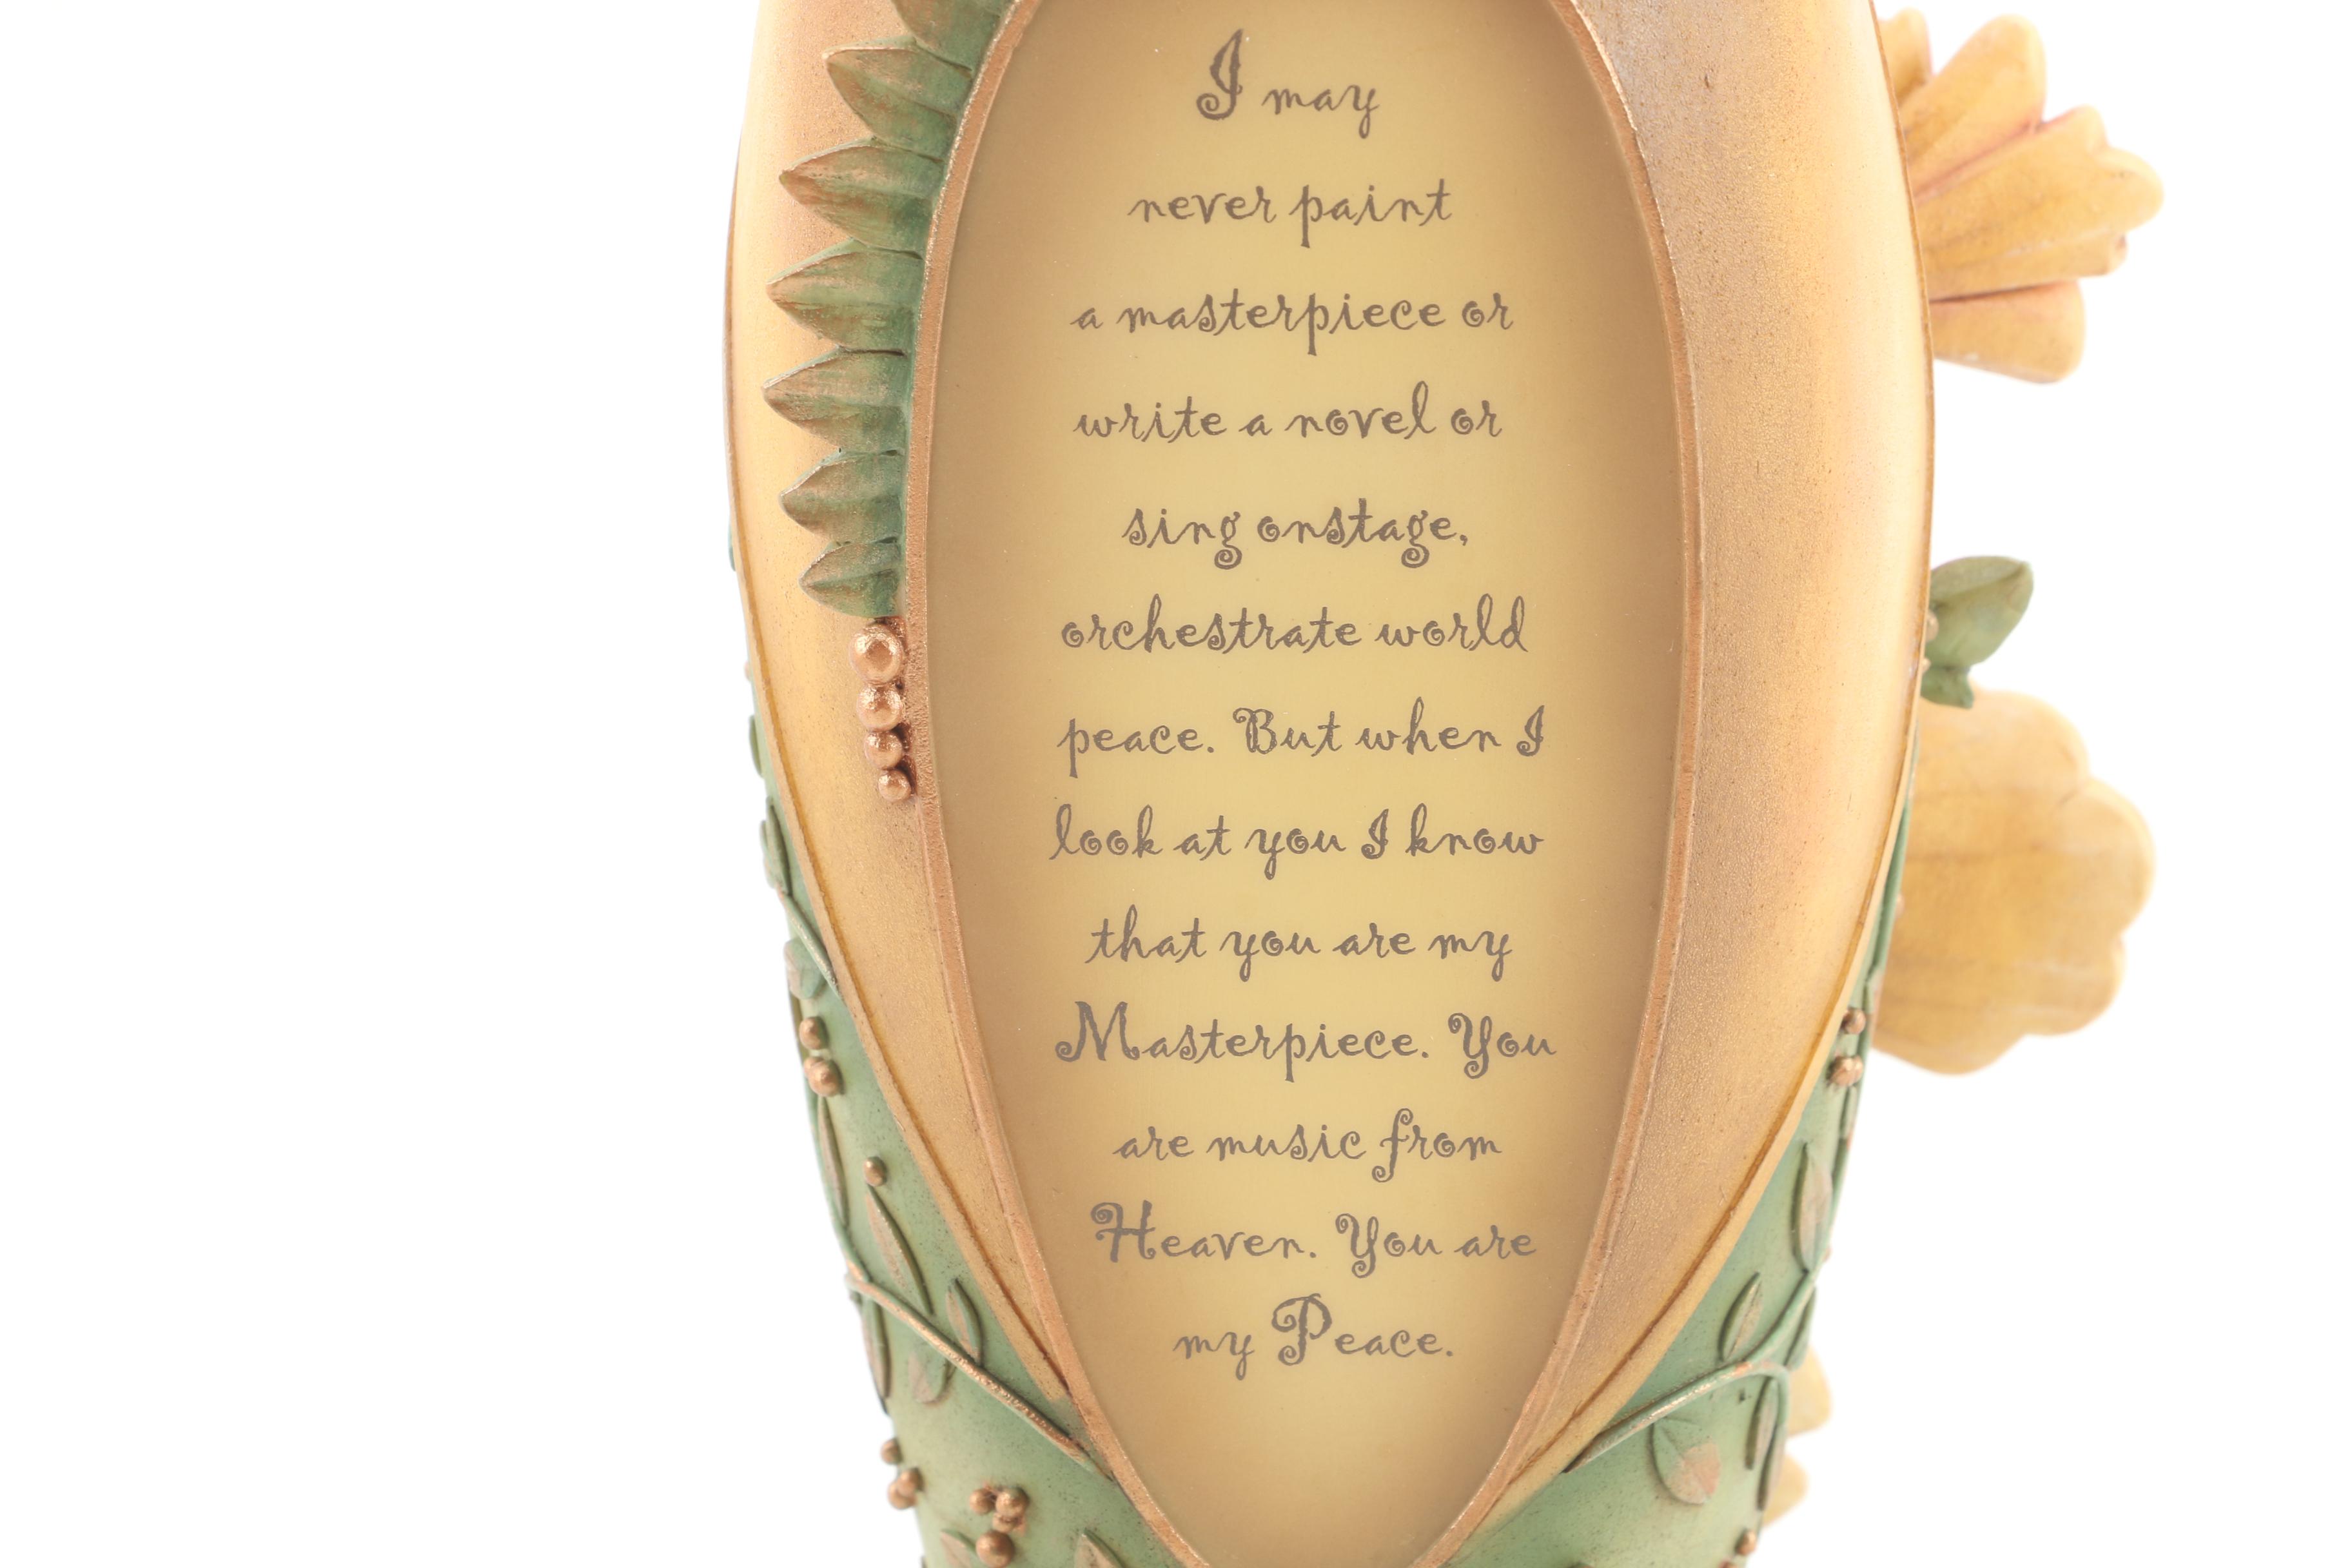 I may
never paint
a masterpiece or
write a novel or
sing onstage,
orchestrate world
peace. But when I
look at you I know
that you are my
Masterpiece. You
are music from
Heaven. You are
my Peace.